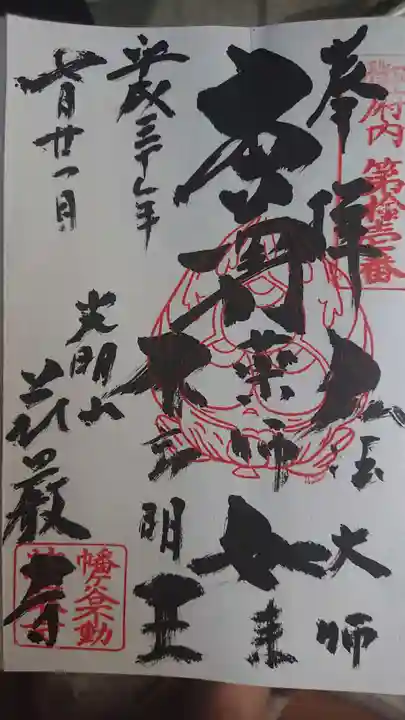 御府内第拾壱番
奉拝
弘法大師
本尊
薬師如来
不動明王
平成三十年
七月廿一日
光明山
荘厳寺
幡ケ谷不動